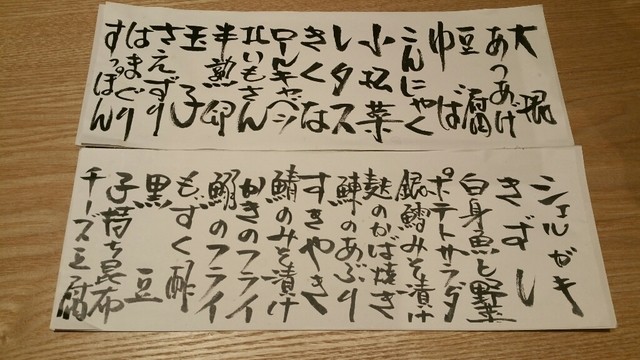 大根
あつあげ
豆腐
ゆば
こんにゃく
小松菜
レタス
きくな
ロールキャベツ
いもさん
半熟卵
玉子
さえずり
はまぐり
すっぽん
シェルガキ
きずし
白身魚と野菜
ポテトサラダ
銀鱈みそ漬け
麩のかば焼き
のあぶり
すきやき
鯖のみそ漬け
かきのフライ
鰯のフライ
もずく酢
黒豆
子持ち昆布
チーズ豆腐